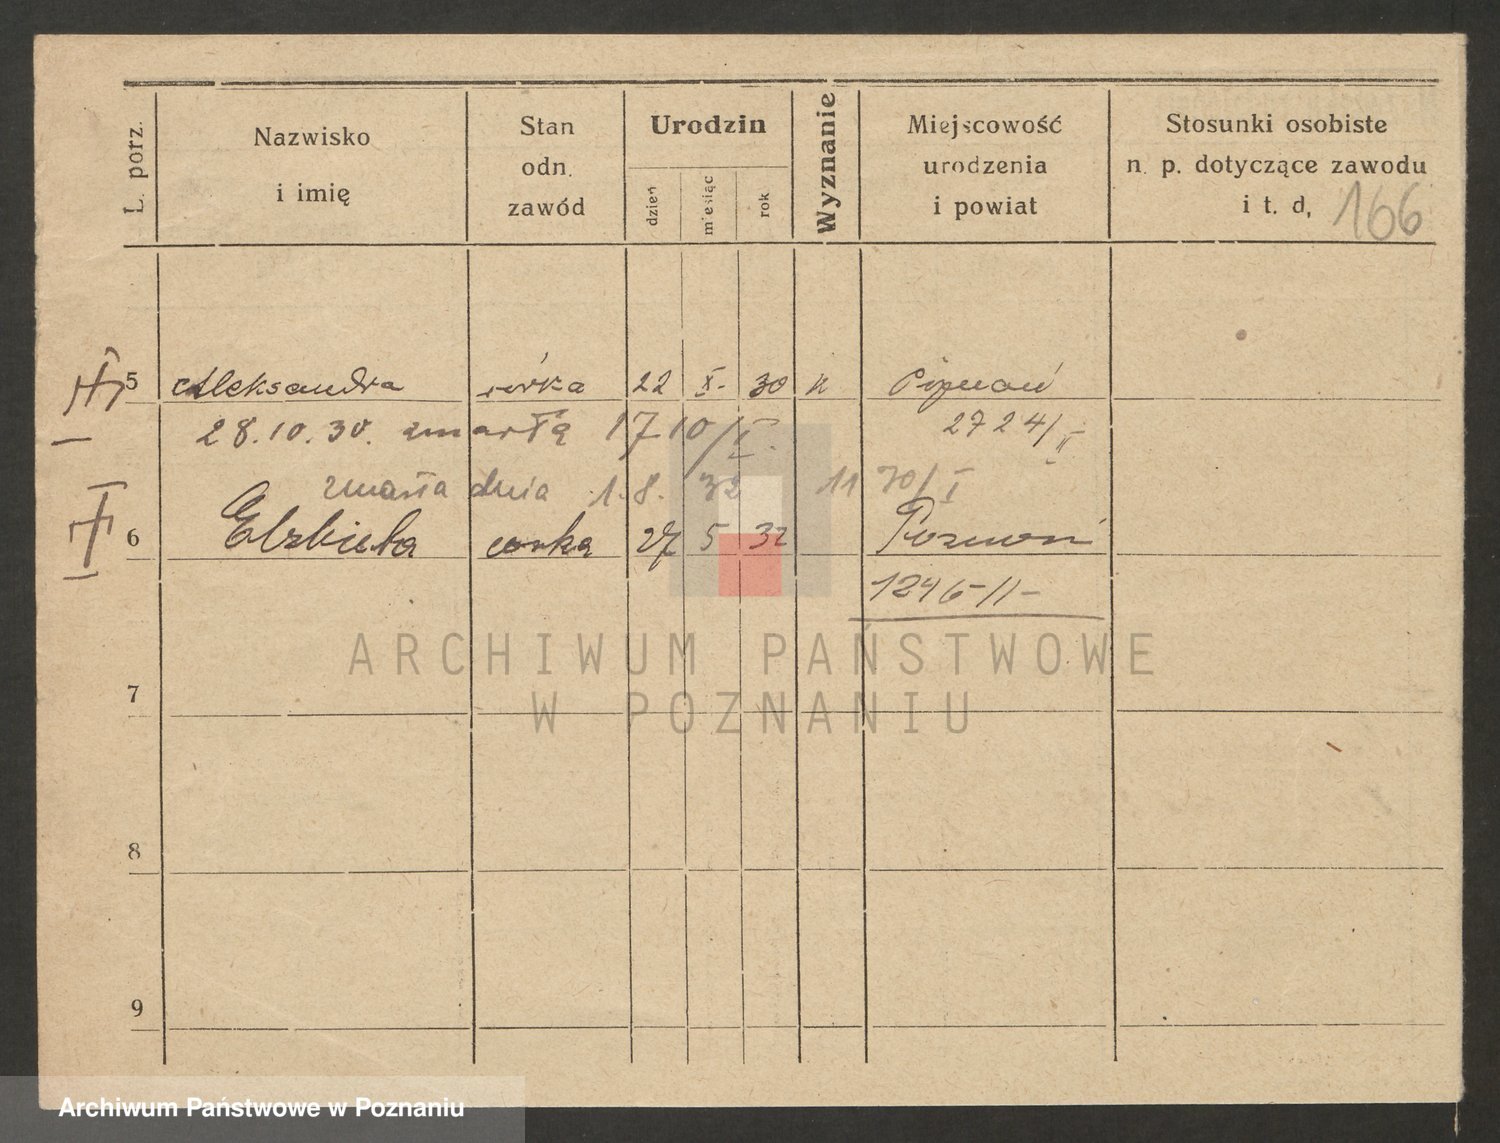 L. porz.
Nazwisko
i imię
Stan
odn.
zawód
Urodzin
dzień
miesiąc
rok
Wyznanie
Miejscowość
urodzenia
i powiat
Stosunki osobiste
n. p. dotyczące zawodu
i t. d,
166
5 Aleksandra córka 22 X. 30 k Poznań
28.10.30. zmarła 1710/I. 2724/II
zmarła dnia 1.8.32 1170/I
6 Elżbieta córka 27 5 32 Poznań
1246-II-
7
8
9
ARCHIWUM PAŃSTWOWE
W POZNANIU
Archiwum Państwowe w Poznaniu